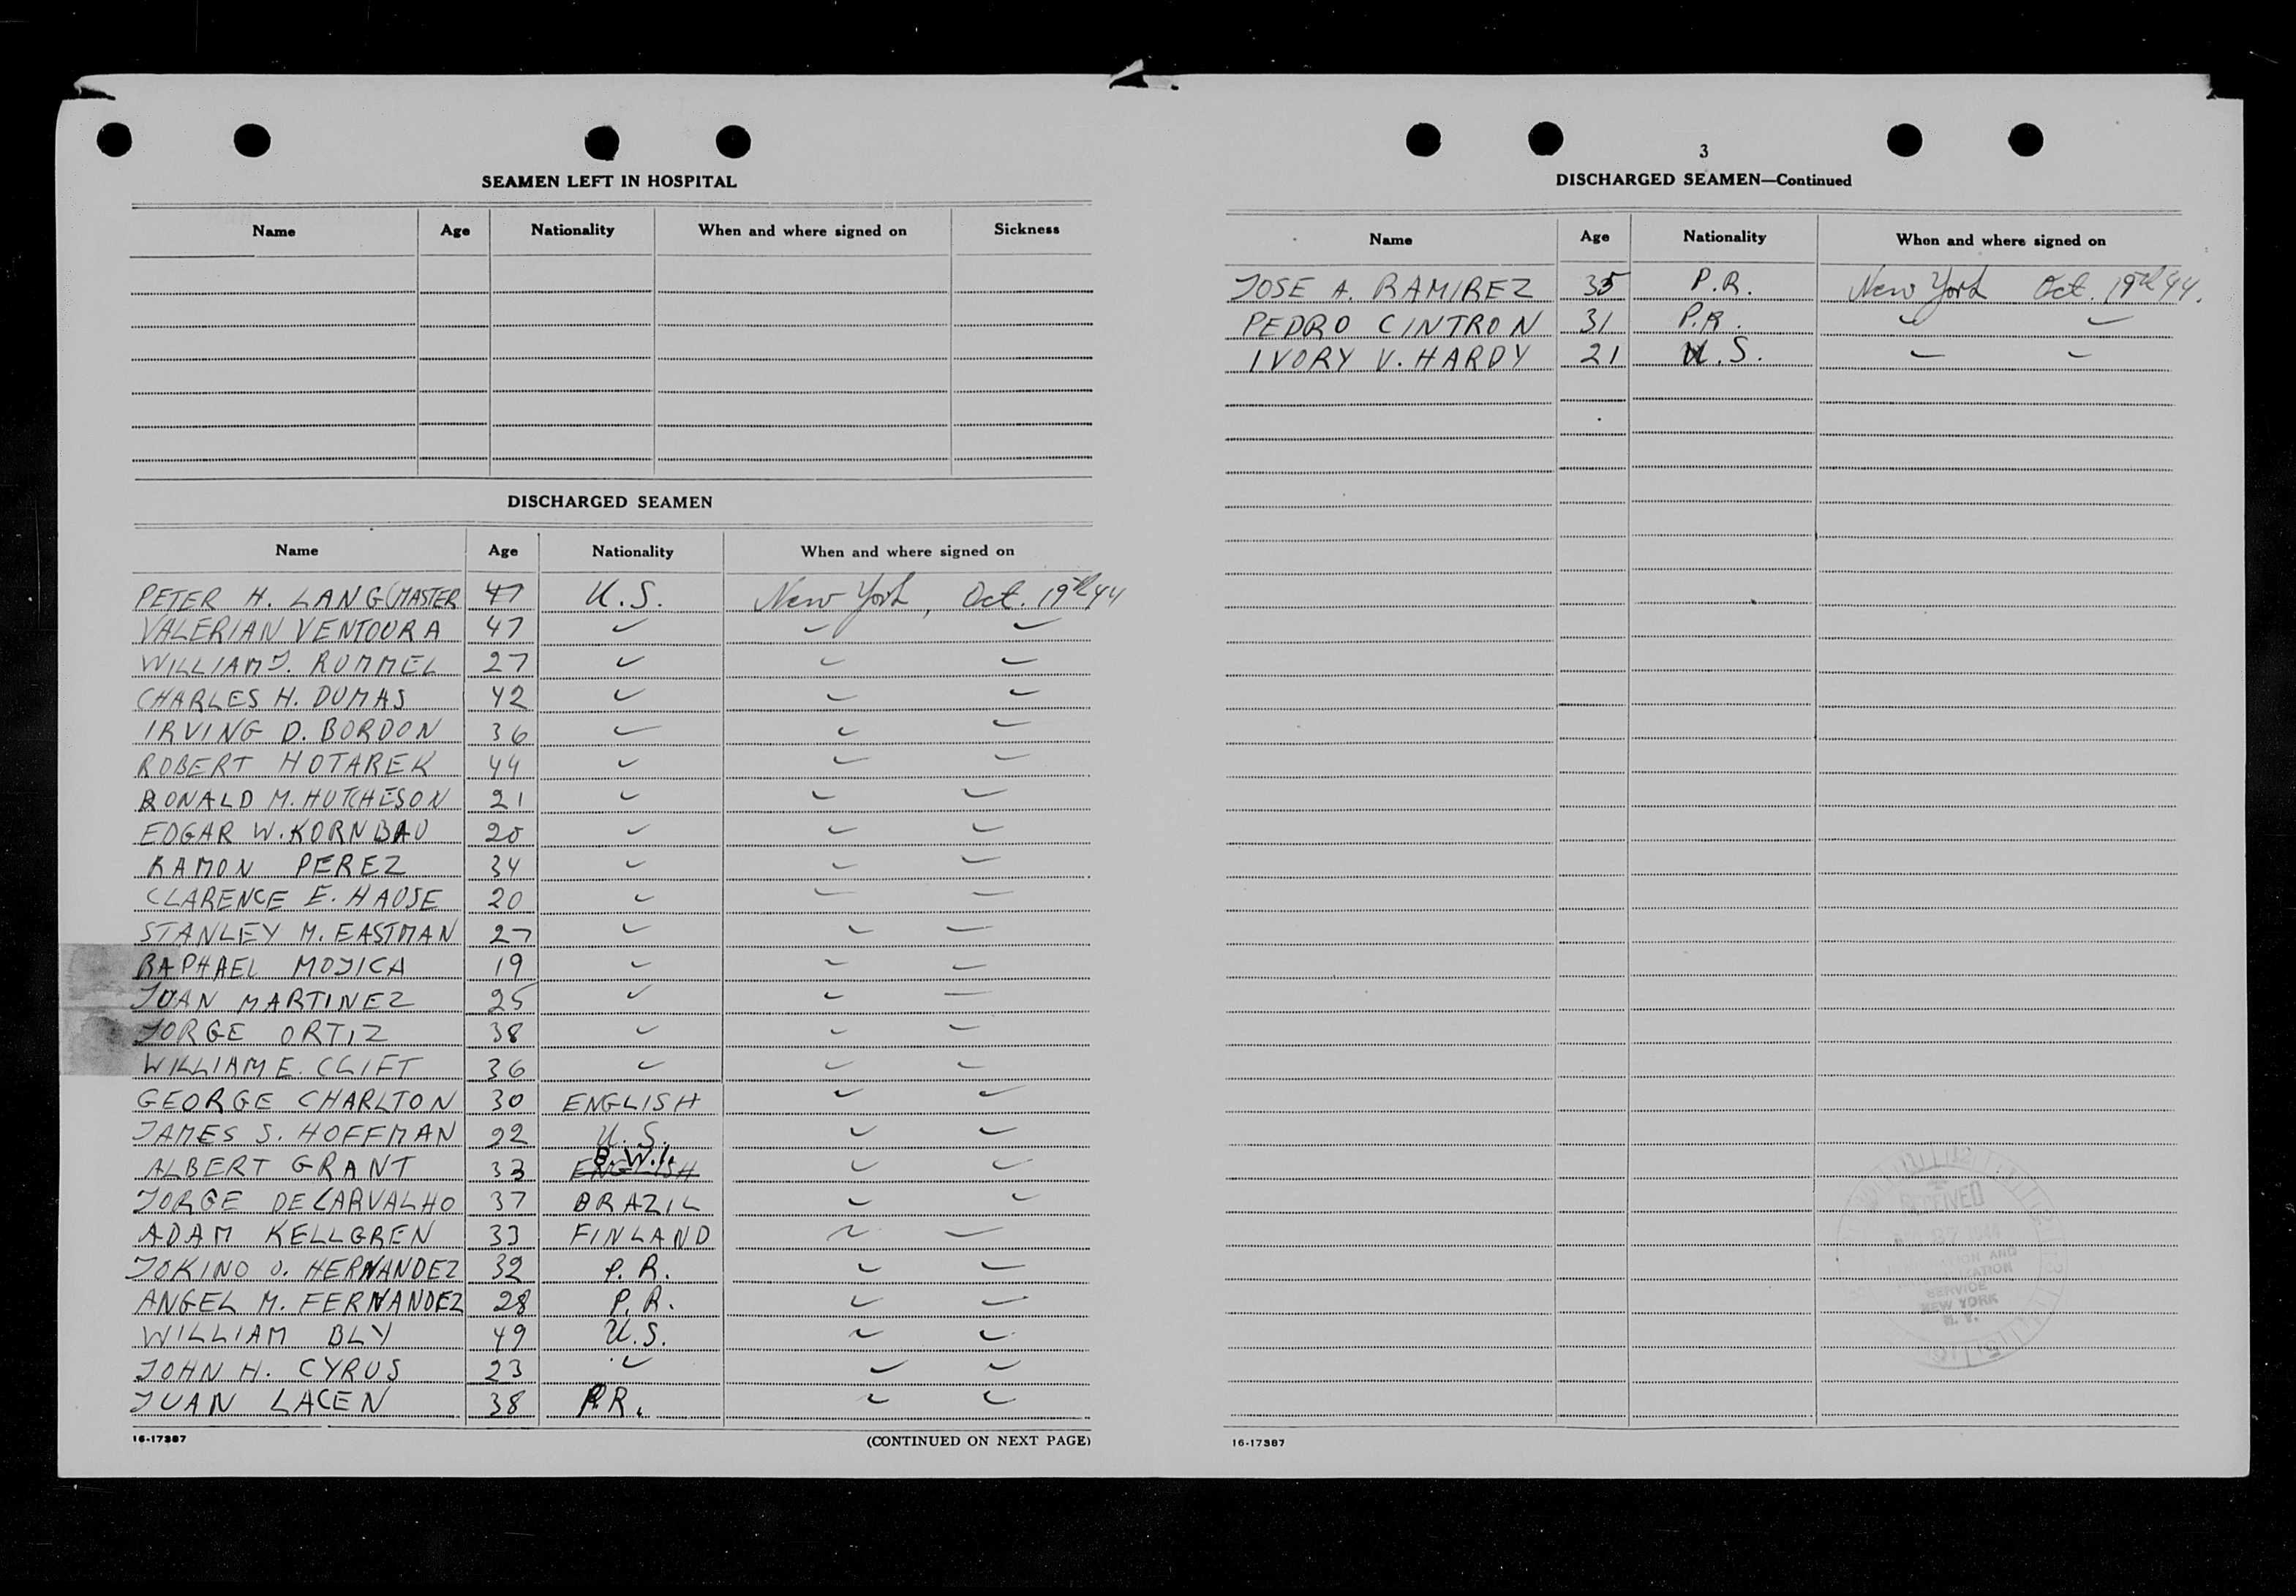 SEAMEN LEFT IN HOSPITAL
Name Age Nationality When and where signed on Sickness
DISCHARGED SEAMEN
Name Age Nationality When and where signed on
PETER H. LANG (MASTER 47 U.S. New York, Oct. 19th 44
VALERIAN VENTOURA 47 ✓ ✓ ✓
WILLIAM J. RUMMEL 27 ✓ ✓ ✓
CHARLES H. DUMAS 42 ✓ ✓ ✓
IRVING D. BORDON 36 ✓ ✓ ✓
ROBERT HOTAREK 44 ✓ ✓ ✓
RONALD M. HUTCHESON 21 ✓ ✓ ✓
EDGAR W. KORNBAU 20 ✓ ✓ ✓
RAMON PEREZ 34 ✓ ✓ ✓
CLARENCE E. HAUSE 20 ✓ ✓ ✓
STANLEY M. EASTMAN 27 ✓ ✓ ✓
RAPHAEL MOJICA 19 ✓ ✓ ✓
JUAN MARTINEZ 25 ✓ ✓ ✓
JORGE ORTIZ 38 ✓ ✓ ✓
WILLIAM E. CLIFT 36 ✓ ✓ ✓
GEORGE CHARLTON 30 ENGLISH ✓ ✓
JAMES S. HOFFMAN 22 U.S. ✓ ✓
ALBERT GRANT 33 ENGLISH B.W.I. ✓ ✓
JORGE DE CARVALHO 37 BRAZIL ✓ ✓
ADAM KELLGREN 33 FINLAND ✓ ✓
JOKINO O. HERNANDEZ 32 P.R. ✓ ✓
ANGEL M. FERNANDEZ 28 P.R. ✓ ✓
WILLIAM BLY 49 U.S. ✓ ✓
JOHN H. CYRUS 23 ✓ ✓ ✓
JUAN LACEN 38 P.R. ✓ ✓
16-17387 (CONTINUED ON NEXT PAGE)
3
DISCHARGED SEAMEN—Continued
Name Age Nationality When and where signed on
JOSE A. RAMIREZ 35 P.R. New York Oct. 19th 44.
PEDRO CINTRON 31 P.R. ✓ ✓
IVORY V. HARDY 21 U.S. ✓ ✓
RECEIVED
IMMIGRATION AND
NATURALIZATION
SERVICE
NEW YORK
N. Y.
16-17387